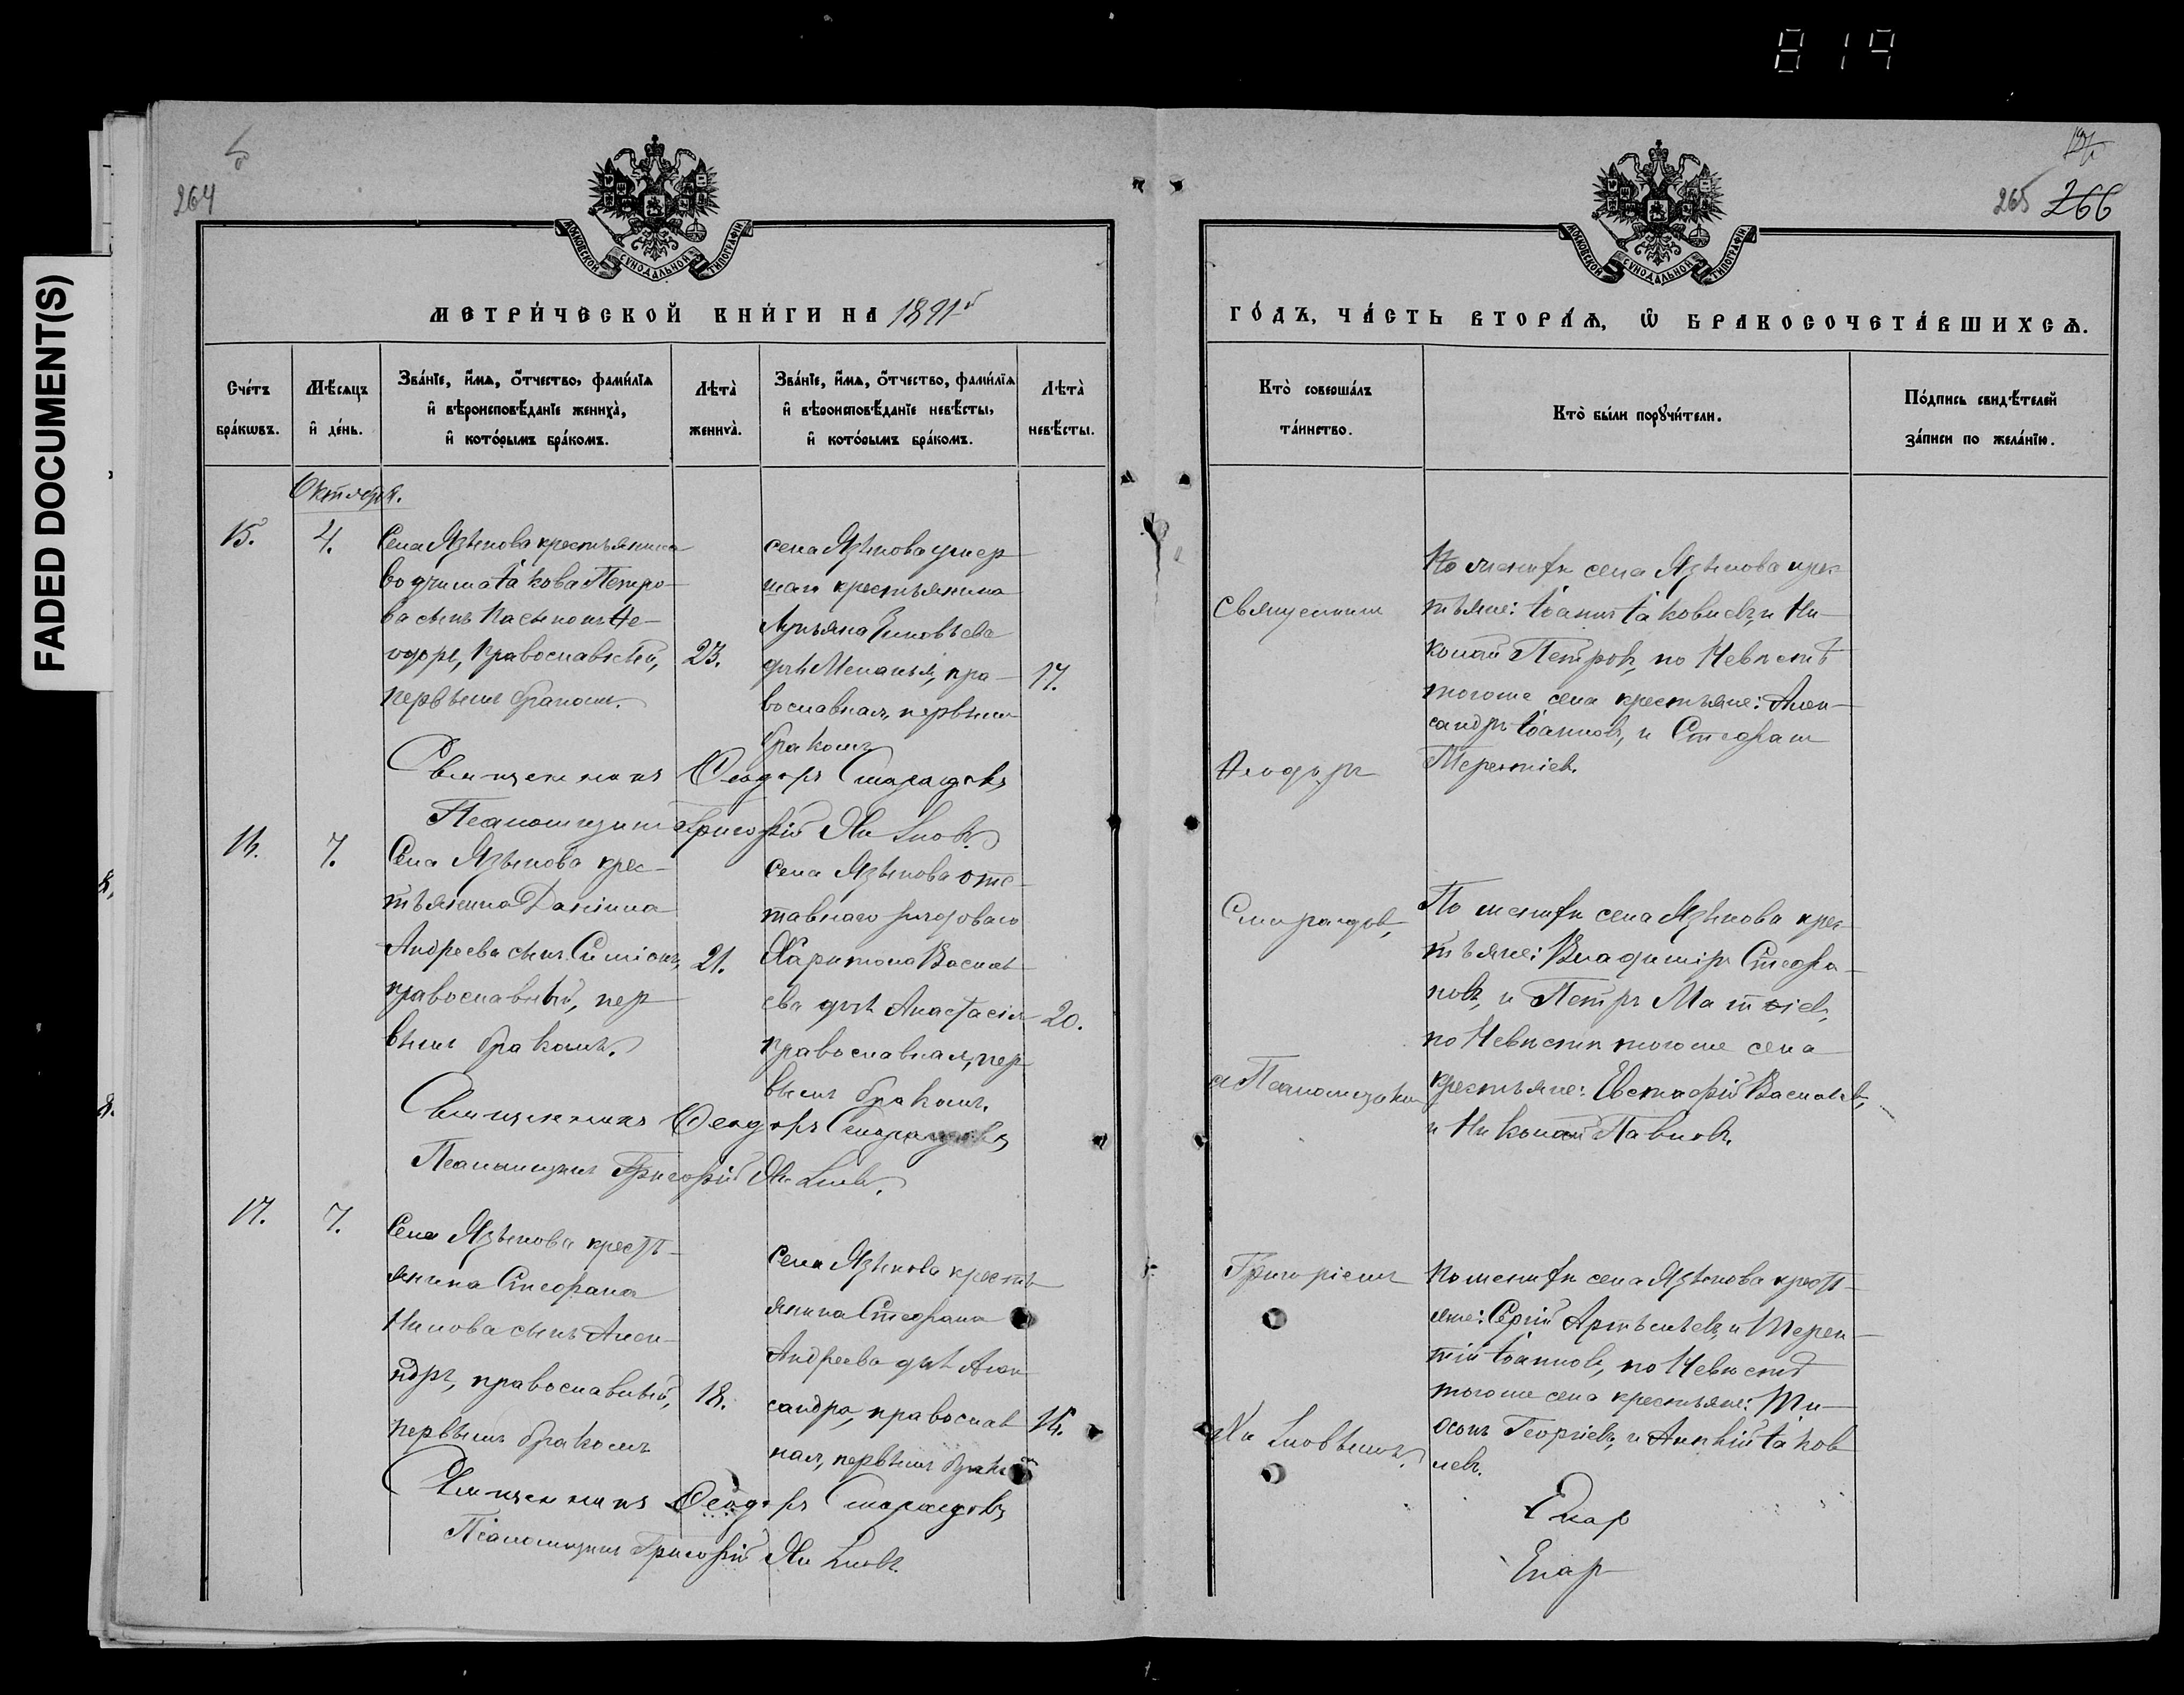 819
FADED DOCUMENT(S)
264
265 266
МОСКОВСКОЙ СУНОДАЛЬНОЙ ТИПОГРАФІИ
МЕТРИ́ЧЕСКОЙ КНИ́ГИ НА 1891й
Сче́тъ бра́кѡвъ.
Мѣ́сяцъ и҆ де́нь.
Зва́нїе, и҆́мѧ, ѻ҆́тчество, фами́лїѧ
и҆ вѣроисповѣ́данїе жениха̀,
и҆ кото́рымъ бра́комъ.
Лѣта̀ жениха̀.
Зва́нїе, и҆́мѧ, ѻ҆́тчество, фами́лїѧ
и҆ вѣроисповѣ́данїе невѣ́сты,
и҆ кото́рымъ бра́комъ.
Лѣта̀ невѣ́сты.
Октября.
15.
4.
Села Языкова крестьянина
Петро-
ва сынъ пасынокъ Ѳе-
одоръ, православный,
первымъ бракомъ.
23.
села Языкова умер
шаго крестьянина
Лукьяна Зиновьева
дчь Меланья, пра-
вославная, первымъ
бракомъ
17.
Священникъ Ѳеодоръ Смарагдовъ
Псаломщикъ Григорій
16.
7.
Села Языкова крес-
тьянина Даніила
Андреева сынъ Симіонъ,
православный, пер-
вымъ бракомъ.
21.
Села Языкова отс-
тавнаго рядоваго
Харитона Василь
ева дчь Анастасія
православная, пер
вымъ бракомъ.
20.
Священникъ Ѳеодоръ Смарагдовъ
Псаломщикъ Григорій
17.
7.
Села Языкова кресть-
янина Стефана
сынъ Алек-
ндръ, православный,
первымъ бракомъ
18.
Села Языкова кресть
янина Стефана
Андреева дчь Алек
сандра, православ
ная, первымъ брако
16.
Священникъ Ѳеодоръ Смарагдовъ
Псаломщикъ Григорій
ГО́ДЪ, ЧА́СТЬ ВТОРА́Ѧ, Ѡ҆ БРАКОСОЧЕТА́ВШИХСѦ.
Кто̀ соверша́лъ
та́инство.
Кто̀ бы́ли порꙋчи́тели.
По́дпись свидѣ́телей
за́писи по жела́нїю.
Священникъ
Ѳеодоръ
Смарагдовъ,
съ Псаломщикомъ
Григоріемъ
По женихѣ села Языкова крес
тьяне: Іоаннъ Іаковлевъ, и Ни-
колай Петровъ, по Невѣстѣ
тогоже села крестьяне: Алек-
сандръ Іоанновъ, и Стефанъ
Терентіевъ.
По женихѣ села Языкова крес-
тьяне: Владиміръ Стефа-
новъ, и Петръ Матѳіевъ,
по Невѣстѣ тогоже села
крестьяне: Евстафій Васильевъ,
и Николай Павловъ.
По женихѣ села Языкова кресть-
яне: Сергій Артемьевъ, и Терен-
тій Іоанновъ, по Невѣстѣ
тогоже села крестьяне: Ти-
Георгіевъ, и Іаков
левъ.